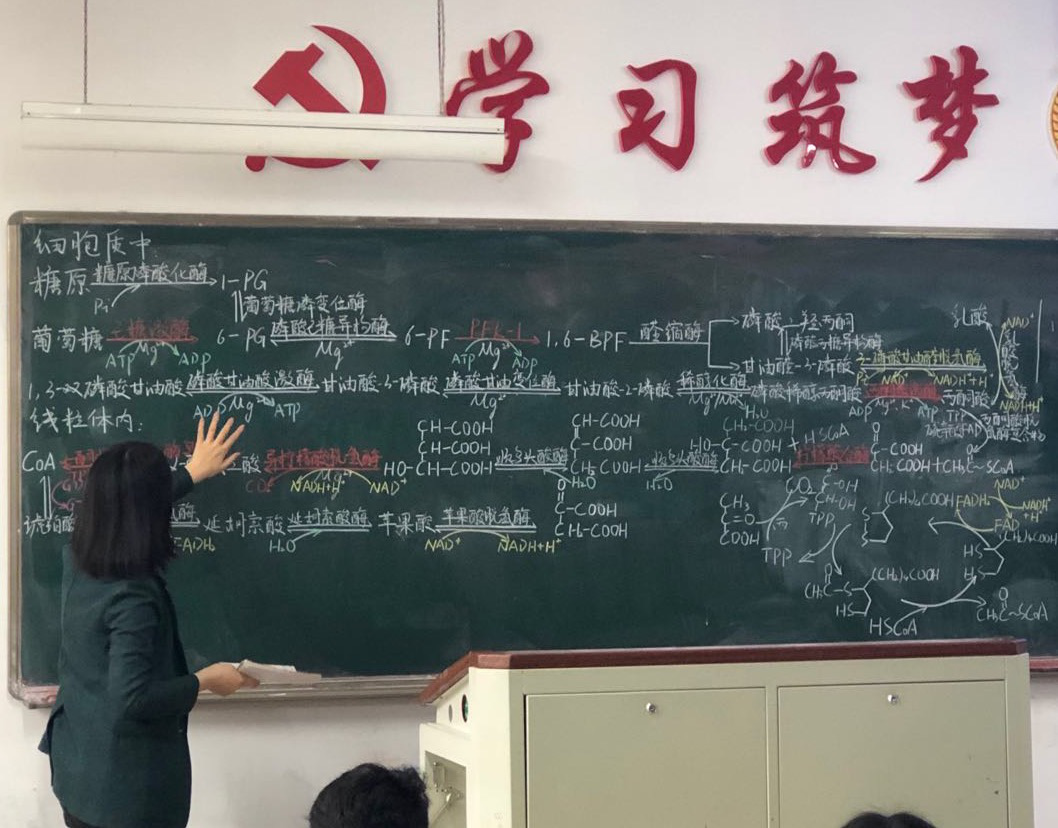 学习筑梦
细胞质中:
糖原 糖原磷酸化酶 1-PG
Pi
葡萄糖磷变位酶
葡萄糖 己糖激酶 6-PG 磷酸己糖异构酶 6-PF PFK-1 1,6-BPF 醛缩酶 磷酸二羟丙酮
ATP Mg²⁺ ADP Mg²⁺ ATP Mg²⁺ ADP
磷酸丙糖异构酶
甘油醛-3-磷酸 3-磷酸甘油醛脱氢酶
Pi NAD⁺ NADH+H⁺
乳酸 NAD⁺
NADH+H⁺
1,3-双磷酸甘油酸 磷酸甘油酸激酶 甘油酸-3-磷酸 磷酸甘油变位酶 甘油酸-2-磷酸 烯醇化酶 磷酸烯醇丙酮酸 丙酮酸
ADP Mg ATP Mg²⁺ H₂O ADP ATP
线粒体内:
CoA 酸 异柠檬酸脱氢酶 HO-CH-COOH 乌头酸酶 乌头酸酶 柠檬酸合酶
CO₂ NADH+H⁺ NAD⁺ H₂O H₂O
CH-COOH
CH-COOH
CH-COOH
C-COOH
CH₂-COOH
CH₂-COOH
HO-C-COOH
CH₂-COOH
+ HSCoA
O
C-COOH
CH₂COOH+CH₃C~SCoA
琥珀酸 酶 延胡索酸 延胡索酸酶 苹果酸 苹果酸脱氢酶
FADH₂ H₂O NAD⁺ NADH+H⁺
O
C-COOH
CH₂-COOH
CH₃
C=O
COOH
CO₂
TPP
TPP
(CH₂)₄COOH
FADH₂ NAD⁺
FAD NADH+H⁺
(CH₂)₄COOH
HS
HS
O
CH₃C-S
(CH₂)₄COOH
HS
HSCoA
O
CH₃C~SCoA